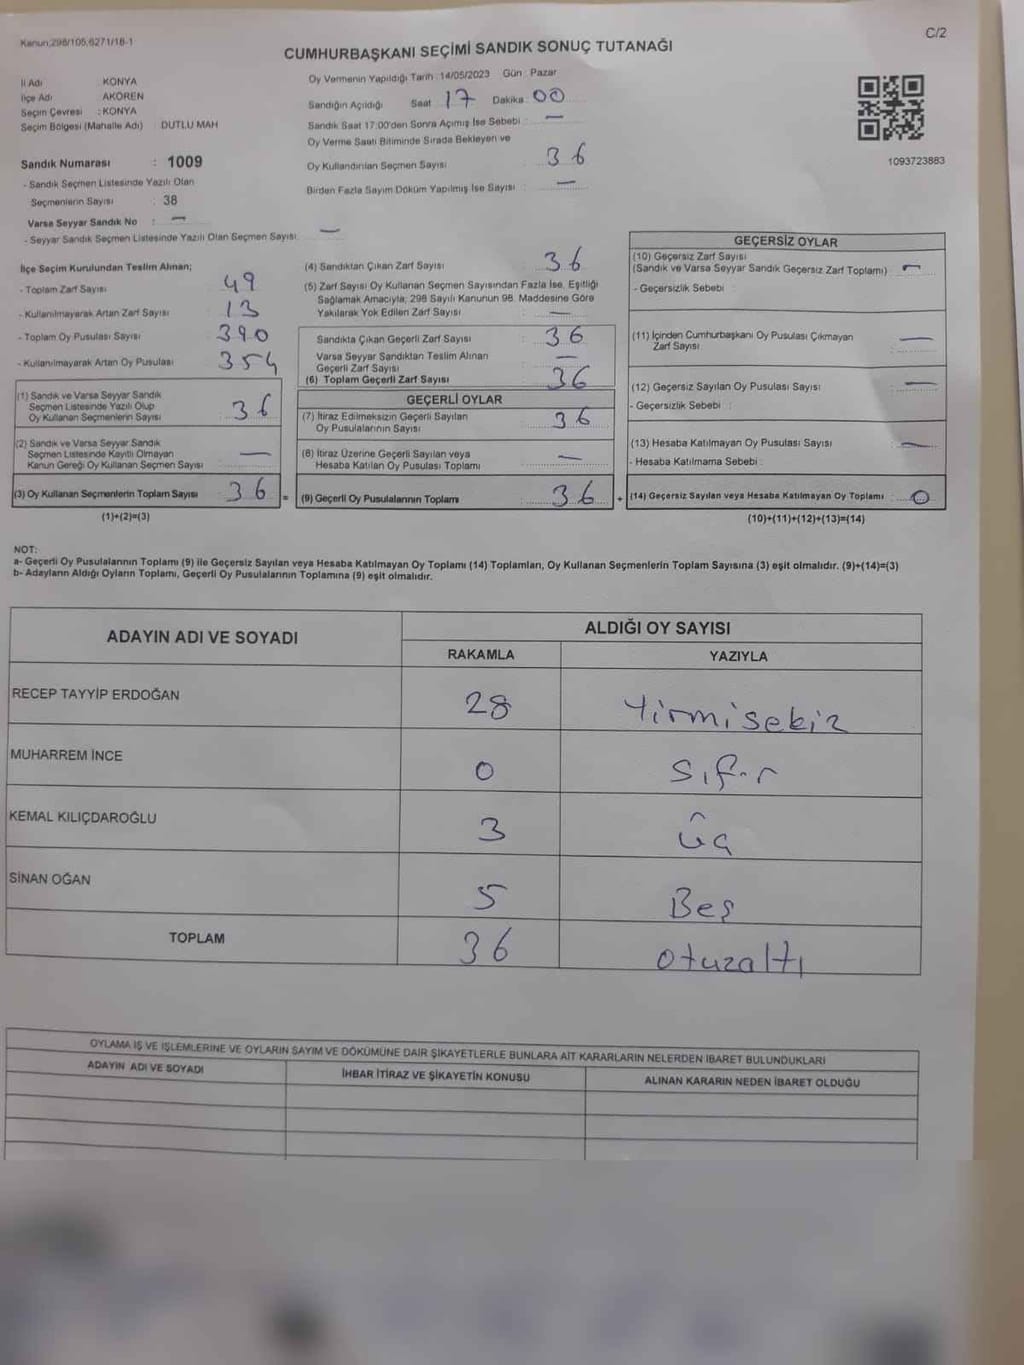 Kanun;298/105,6271/18-1
C/2
CUMHURBAŞKANI SEÇİMİ SANDIK SONUÇ TUTANAĞI
İl Adı : KONYA
İlçe Adı : AKÖREN
Seçim Çevresi : KONYA
Seçim Bölgesi (Mahalle Adı) : DUTLU MAH
Sandık Numarası : 1009
- Sandık Seçmen Listesinde Yazılı Olan
Seçmenlerin Sayısı : 38
Varsa Seyyar Sandık No : —
- Seyyar Sandık Seçmen Listesinde Yazılı Olan Seçmen Sayısı: —
Oy Vermenin Yapıldığı Tarih : 14/05/2023 Gün : Pazar
Sandığın Açıldığı Saat : 17 Dakika : 00
Sandık Saat 17:00'den Sonra Açılmış İse Sebebi : —
Oy Verme Saati Bitiminde Sırada Bekleyen ve
Oy Kullandırılan Seçmen Sayısı : 36
Birden Fazla Sayım Döküm Yapılmış İse Sayısı : —
1093723883
İlçe Seçim Kurulundan Teslim Alınan;
- Toplam Zarf Sayısı : 49
- Kullanılmayarak Artan Zarf Sayısı : 13
- Toplam Oy Pusulası Sayısı : 390
- Kullanılmayarak Artan Oy Pusulası : 354
(1) Sandık ve Varsa Seyyar Sandık
Seçmen Listesinde Yazılı Olup
Oy Kullanan Seçmenlerin Sayısı : 36
(2) Sandık ve Varsa Seyyar Sandık
Seçmen Listesinde Kayıtlı Olmayan
Kanun Gereği Oy Kullanan Seçmen Sayısı : —
(3) Oy Kullanan Seçmenlerin Toplam Sayısı : 36 =
(1)+(2)=(3)
(4) Sandıktan Çıkan Zarf Sayısı : 36
(5) Zarf Sayısı Oy Kullanan Seçmen Sayısından Fazla İse, Eşitliği
Sağlamak Amacıyla; 298 Sayılı Kanunun 98. Maddesine Göre
Yakılarak Yok Edilen Zarf Sayısı : —
Sandıkta Çıkan Geçerli Zarf Sayısı : 36
Varsa Seyyar Sandıktan Teslim Alınan
Geçerli Zarf Sayısı : —
(6) Toplam Geçerli Zarf Sayısı : 36
GEÇERLİ OYLAR
(7) İtiraz Edilmeksizin Geçerli Sayılan
Oy Pusulalarının Sayısı : 36
(8) İtiraz Üzerine Geçerli Sayılan veya
Hesaba Katılan Oy Pusulası Toplamı : —
(9) Geçerli Oy Pusulalarının Toplamı : 36 +
GEÇERSİZ OYLAR
(10) Geçersiz Zarf Sayısı
(Sandık ve Varsa Seyyar Sandık Geçersiz Zarf Toplamı) : —
- Geçersizlik Sebebi :
(11) İçinden Cumhurbaşkanı Oy Pusulası Çıkmayan
Zarf Sayısı : —
(12) Geçersiz Sayılan Oy Pusulası Sayısı : —
- Geçersizlik Sebebi :
(13) Hesaba Katılmayan Oy Pusulası Sayısı : —
- Hesaba Katılmama Sebebi :
(14) Geçersiz Sayılan veya Hesaba Katılmayan Oy Toplamı : 0
(10)+(11)+(12)+(13)=(14)
NOT:
a- Geçerli Oy Pusulalarının Toplamı (9) ile Geçersiz Sayılan veya Hesaba Katılmayan Oy Toplamı (14) Toplamları, Oy Kullanan Seçmenlerin Toplam Sayısına (3) eşit olmalıdır. (9)+(14)=(3)
b- Adayların Aldığı Oyların Toplamı, Geçerli Oy Pusulalarının Toplamına (9) eşit olmalıdır.
ADAYIN ADI VE SOYADI
ALDIĞI OY SAYISI
RAKAMLA YAZIYLA
RECEP TAYYİP ERDOĞAN 28 Yirmisekiz
MUHARREM İNCE 0 Sıfır
KEMAL KILIÇDAROĞLU 3 üç
SİNAN OĞAN 5 Beş
TOPLAM 36 otuzaltı
OYLAMA İŞ VE İŞLEMLERİNE VE OYLARIN SAYIM VE DÖKÜMÜNE DAİR ŞİKAYETLERLE BUNLARA AİT KARARLARIN NELERDEN İBARET BULUNDUKLARI
ADAYIN ADI VE SOYADI İHBAR İTİRAZ VE ŞİKAYETİN KONUSU ALINAN KARARIN NEDEN İBARET OLDUĞU